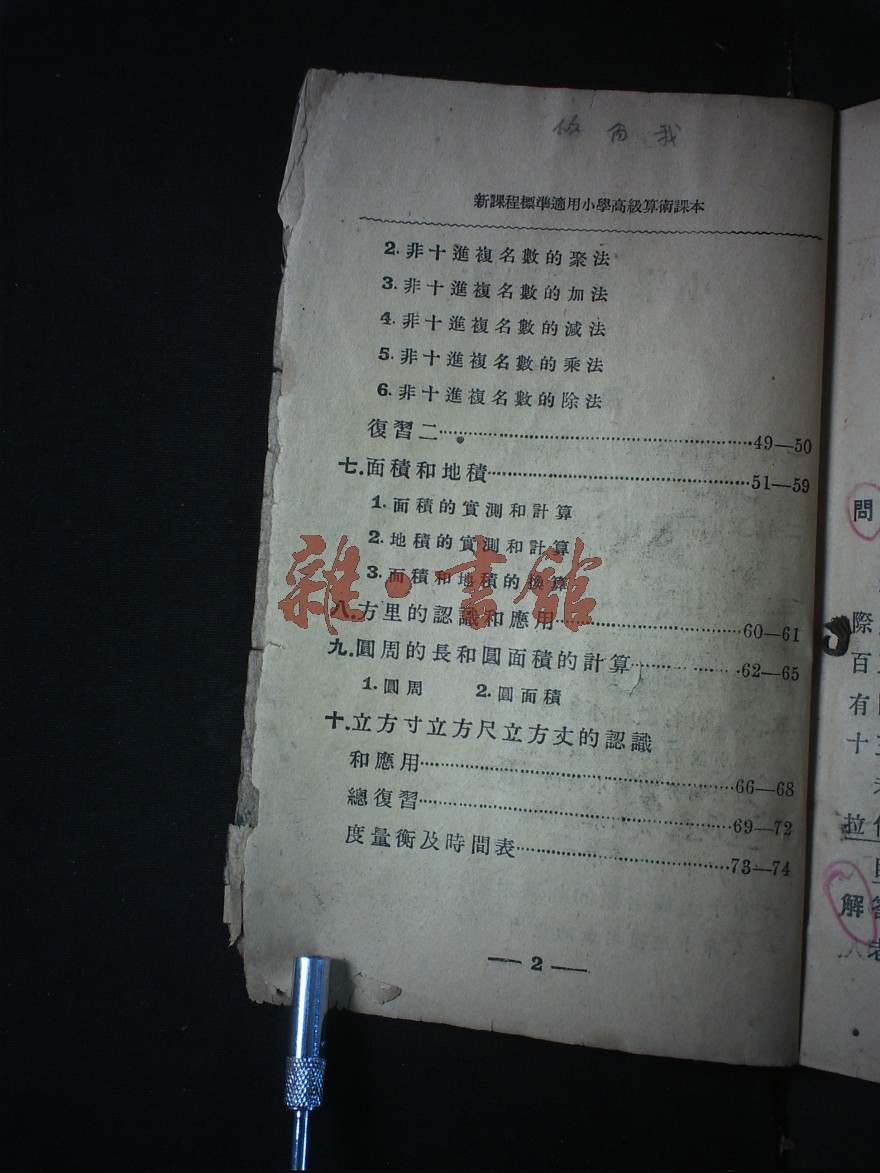 新課程標準適用小學高級算術課本
2. 非十進複名數的聚法
3. 非十進複名數的加法
4. 非十進複名數的減法
5. 非十進複名數的乘法
6. 非十進複名數的除法
復習二……49—50
七.面積和地積……51—59
1. 面積的實測和計算
2. 地積的實測和計算
3. 面積和地積的換算
八.方里的認識和應用……60—61
九.圓周的長和圓面積的計算……62—65
1. 圓周 2. 圓面積
十.立方寸立方尺立方丈的認識
和應用……66—68
總復習……69—72
度量衡及時間表……73—74
— 2 —
雜·書館
問
際
百
有
十
拉
解